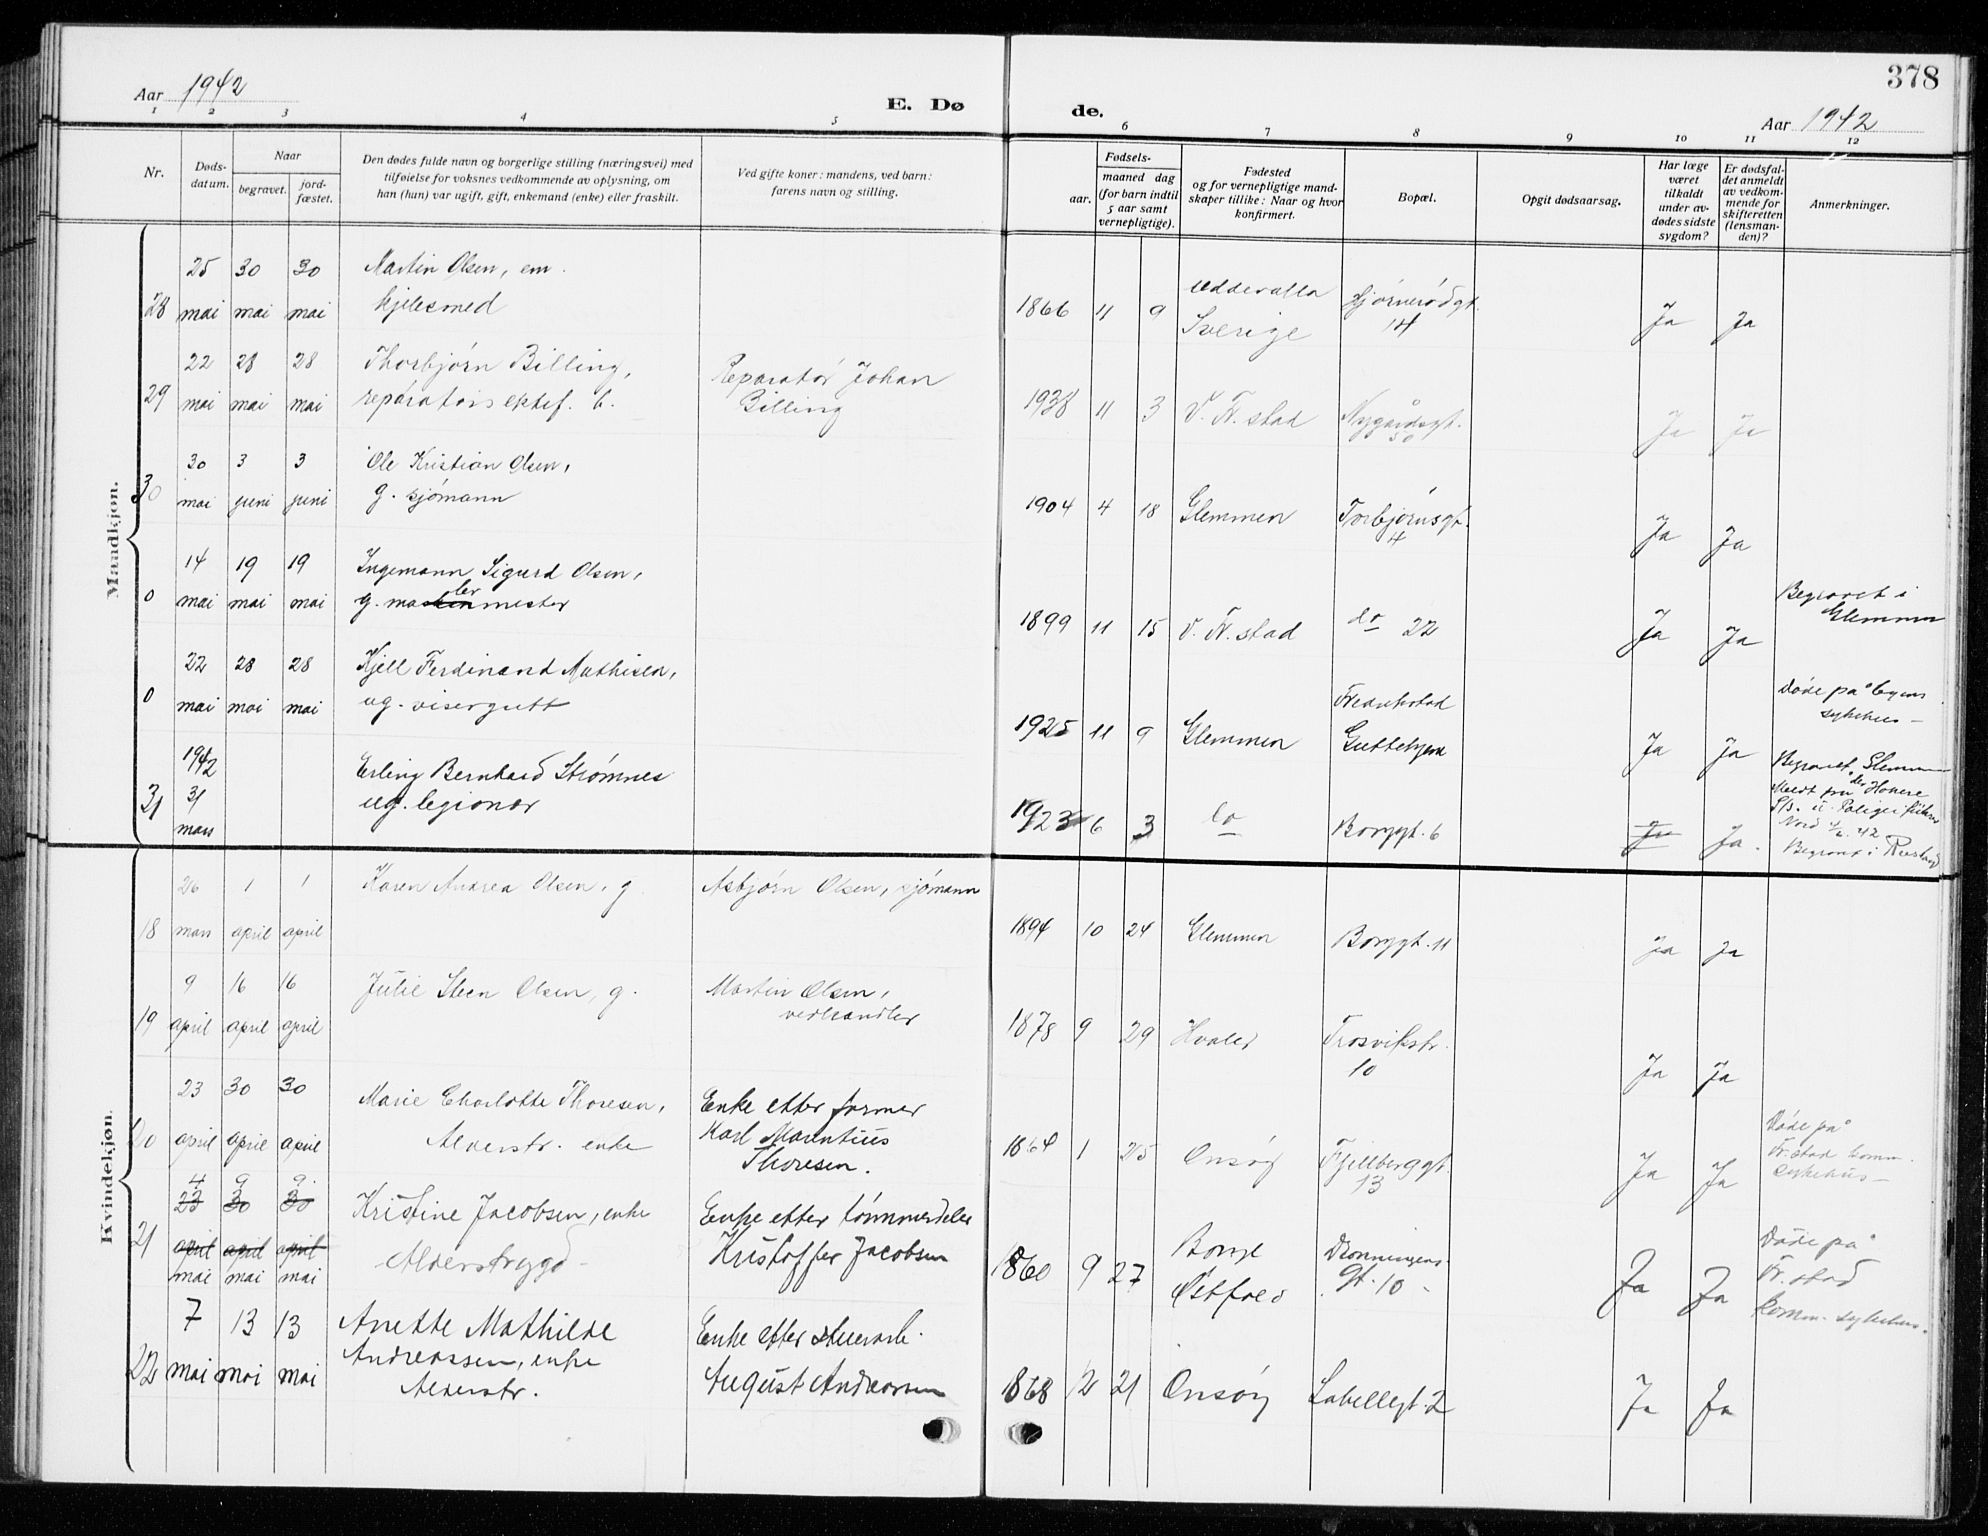 378
Aar 1942
E. Dø
de.
Aar 1942
1 2 3 4 5 6 7 8 9 10 11 12
Nr.
Døds-
datum.
Naar
begravet.
jord-
fæstet.
Den dødes fulde navn og borgerlige stilling (næringsvei) med
tilføielse for voksnes vedkommende av oplysning, om
han (hun) var ugift, gift, enkemand (enke) eller fraskilt.
Ved gifte koner: mandens, ved barn:
farens navn og stilling.
Fødsels-
aar.
maaned dag
(for barn indtil
5 aar samt
vernepligtige).
Fødested
og for vernepligtige mand-
skaper tillike: Naar og hvor
konfirmert.
Bopæl.
Opgit dødsaarsag.
Har læge
været
tilkaldt
under av-
dødes sidste
sygdom?
Er dødsfal-
det anmeldt
av vedkom-
mende for
skifteretten
(lensman-
den)?
Anmerkninger.
Mandkjøn.
25 30 30 Martin Olsen, em.
28 mai mai mai kjelesmed
1866 11 9 Uddevalla
Sverige
14
Ja Ja
22 28 28 Thorbjørn Billing,
29 mai mai mai reparatørs ektef. b.
Reparatør Johan
Billing
1938 11 3 V. Fr. stad Nygårdsgt.
30
Ja Ja
30 3 3 Ole Kristian Olsen,
30 mai juni juni g. sjömann
1904 4 18 Glemmen Torbjørnsgt.
4
Ja Ja
14 19 19 Ingemann Sigurd Olsen,
0 mai mai mai g. maskinmester
ler
1899 11 15 V. Fr. stad do 22
Ja Ja
Begravet i
Glemmen
22 28 28 Kjell Ferdinand Mathisen,
0 mai mai mai ug. visergutt
1925 11 9 Glemmen Fredrikstad
Guttehjem
Ja Ja
Døde på byens
sykehus –
Begravet Glemmen
1942
31 31 Erling Bernhard Strømnes
mars ug. legionær
1923 6 3 do Borggt. 6
Ja Ja.
Meldt fra
Nord 42
Begravet i
Kvindekjøn.
26 1 1 Karen Andrea Olsen, g.
18 mars april april
Asbjørn Olsen, sjömann
1894 10 24 Glemmen Borggt. 11
Ja Ja
9 16 16 Julie Steen Olsen, g.
19 april april april
Martin Olsen,
vedhandler
1878 9 29 Hvaler Trosvikstr.
10
Ja Ja
23 30 30 Marie Charlotte Thoresen,
20 april april april Alderstr. enke
Enke etter former
Karl Marentius
Thoresen.
1864 1 25 Onsøy Fjellberggt.
13
Ja Ja
Døde på
Fr. stad komm.
sykehus –
4 9 9
23 30 30 Kristine Jacobsen, enke
21 april april april Alderstrygd –
mai mai mai
Enke etter tömmerdeler
Kristoffer Jacobsen
1860 9 27 Borge
Østfold
Dronningens-
gt. 10 –
Ja Ja
Døde på
Fr. stad
komm. sykehus.
7 13 13 Anette Mathilde
22 mai mai mai Andreassen, enke
Alderstr.
Enke etter stuerarb.
August Andreassen
1868 12 21 Onsøy Labellegt. 2
Ja Ja